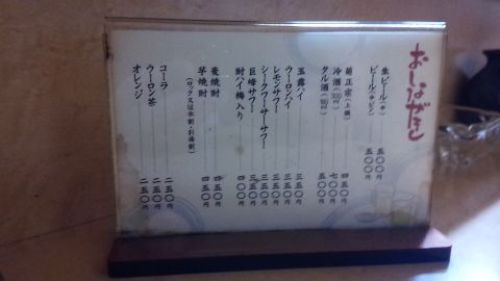 おしながき
生ビール(中) 五〇〇円
ビール(大ビン) 五〇〇円
菊正宗(上撰) 四五〇円
冷酒(300ml) 七〇〇円
タル酒(180ml) 五〇〇円
玉露ハイ 三五〇円
ウーロンハイ 三五〇円
レモンサワー 三五〇円
シークワーサーサワー 三五〇円
巨峰サワー 三五〇円
酎ハイ梅入り 四〇〇円
麦焼酎 四五〇円
芋焼酎 四五〇円
(ロック又は水割・お湯割)
コーラ 二五〇円
ウーロン茶 二五〇円
オレンジ 二五〇円